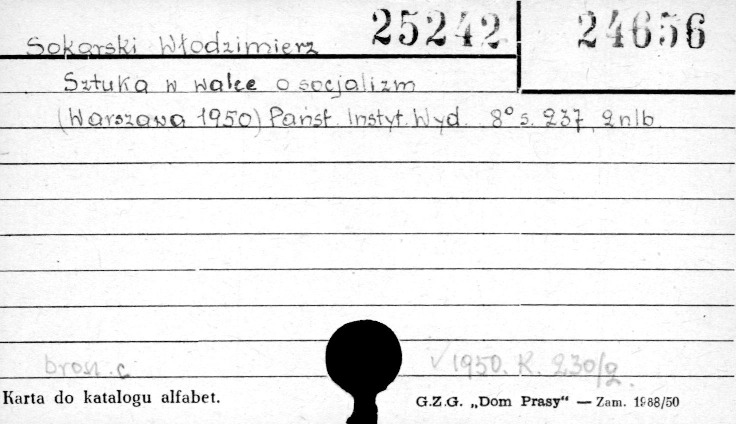 25242 24656
Sokorski Włodzimierz
Sztuka w walce o socjalizm
(Warszawa 1950) Państ. Instyt. Wyd. 8° s. 237, 2nlb.
brosz. c
√ 1950. K. 230/2.
Karta do katalogu alfabet.
G.Z.G. „Dom Prasy“ — Zam. 1988/50